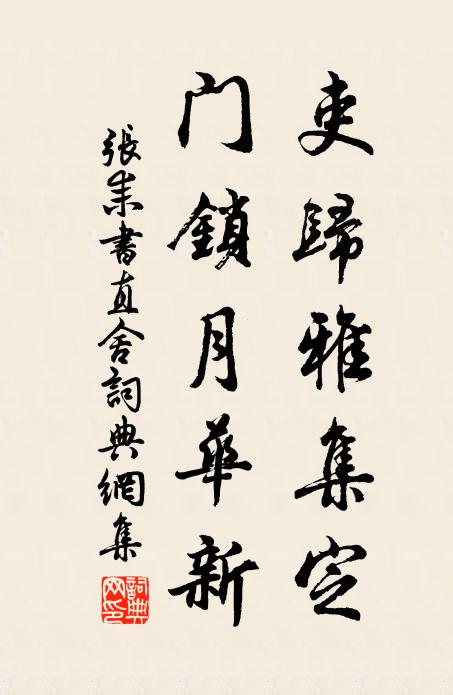 吏歸雅集定
門鎖月華新
張耒書直舍詞典網集
詞典网印